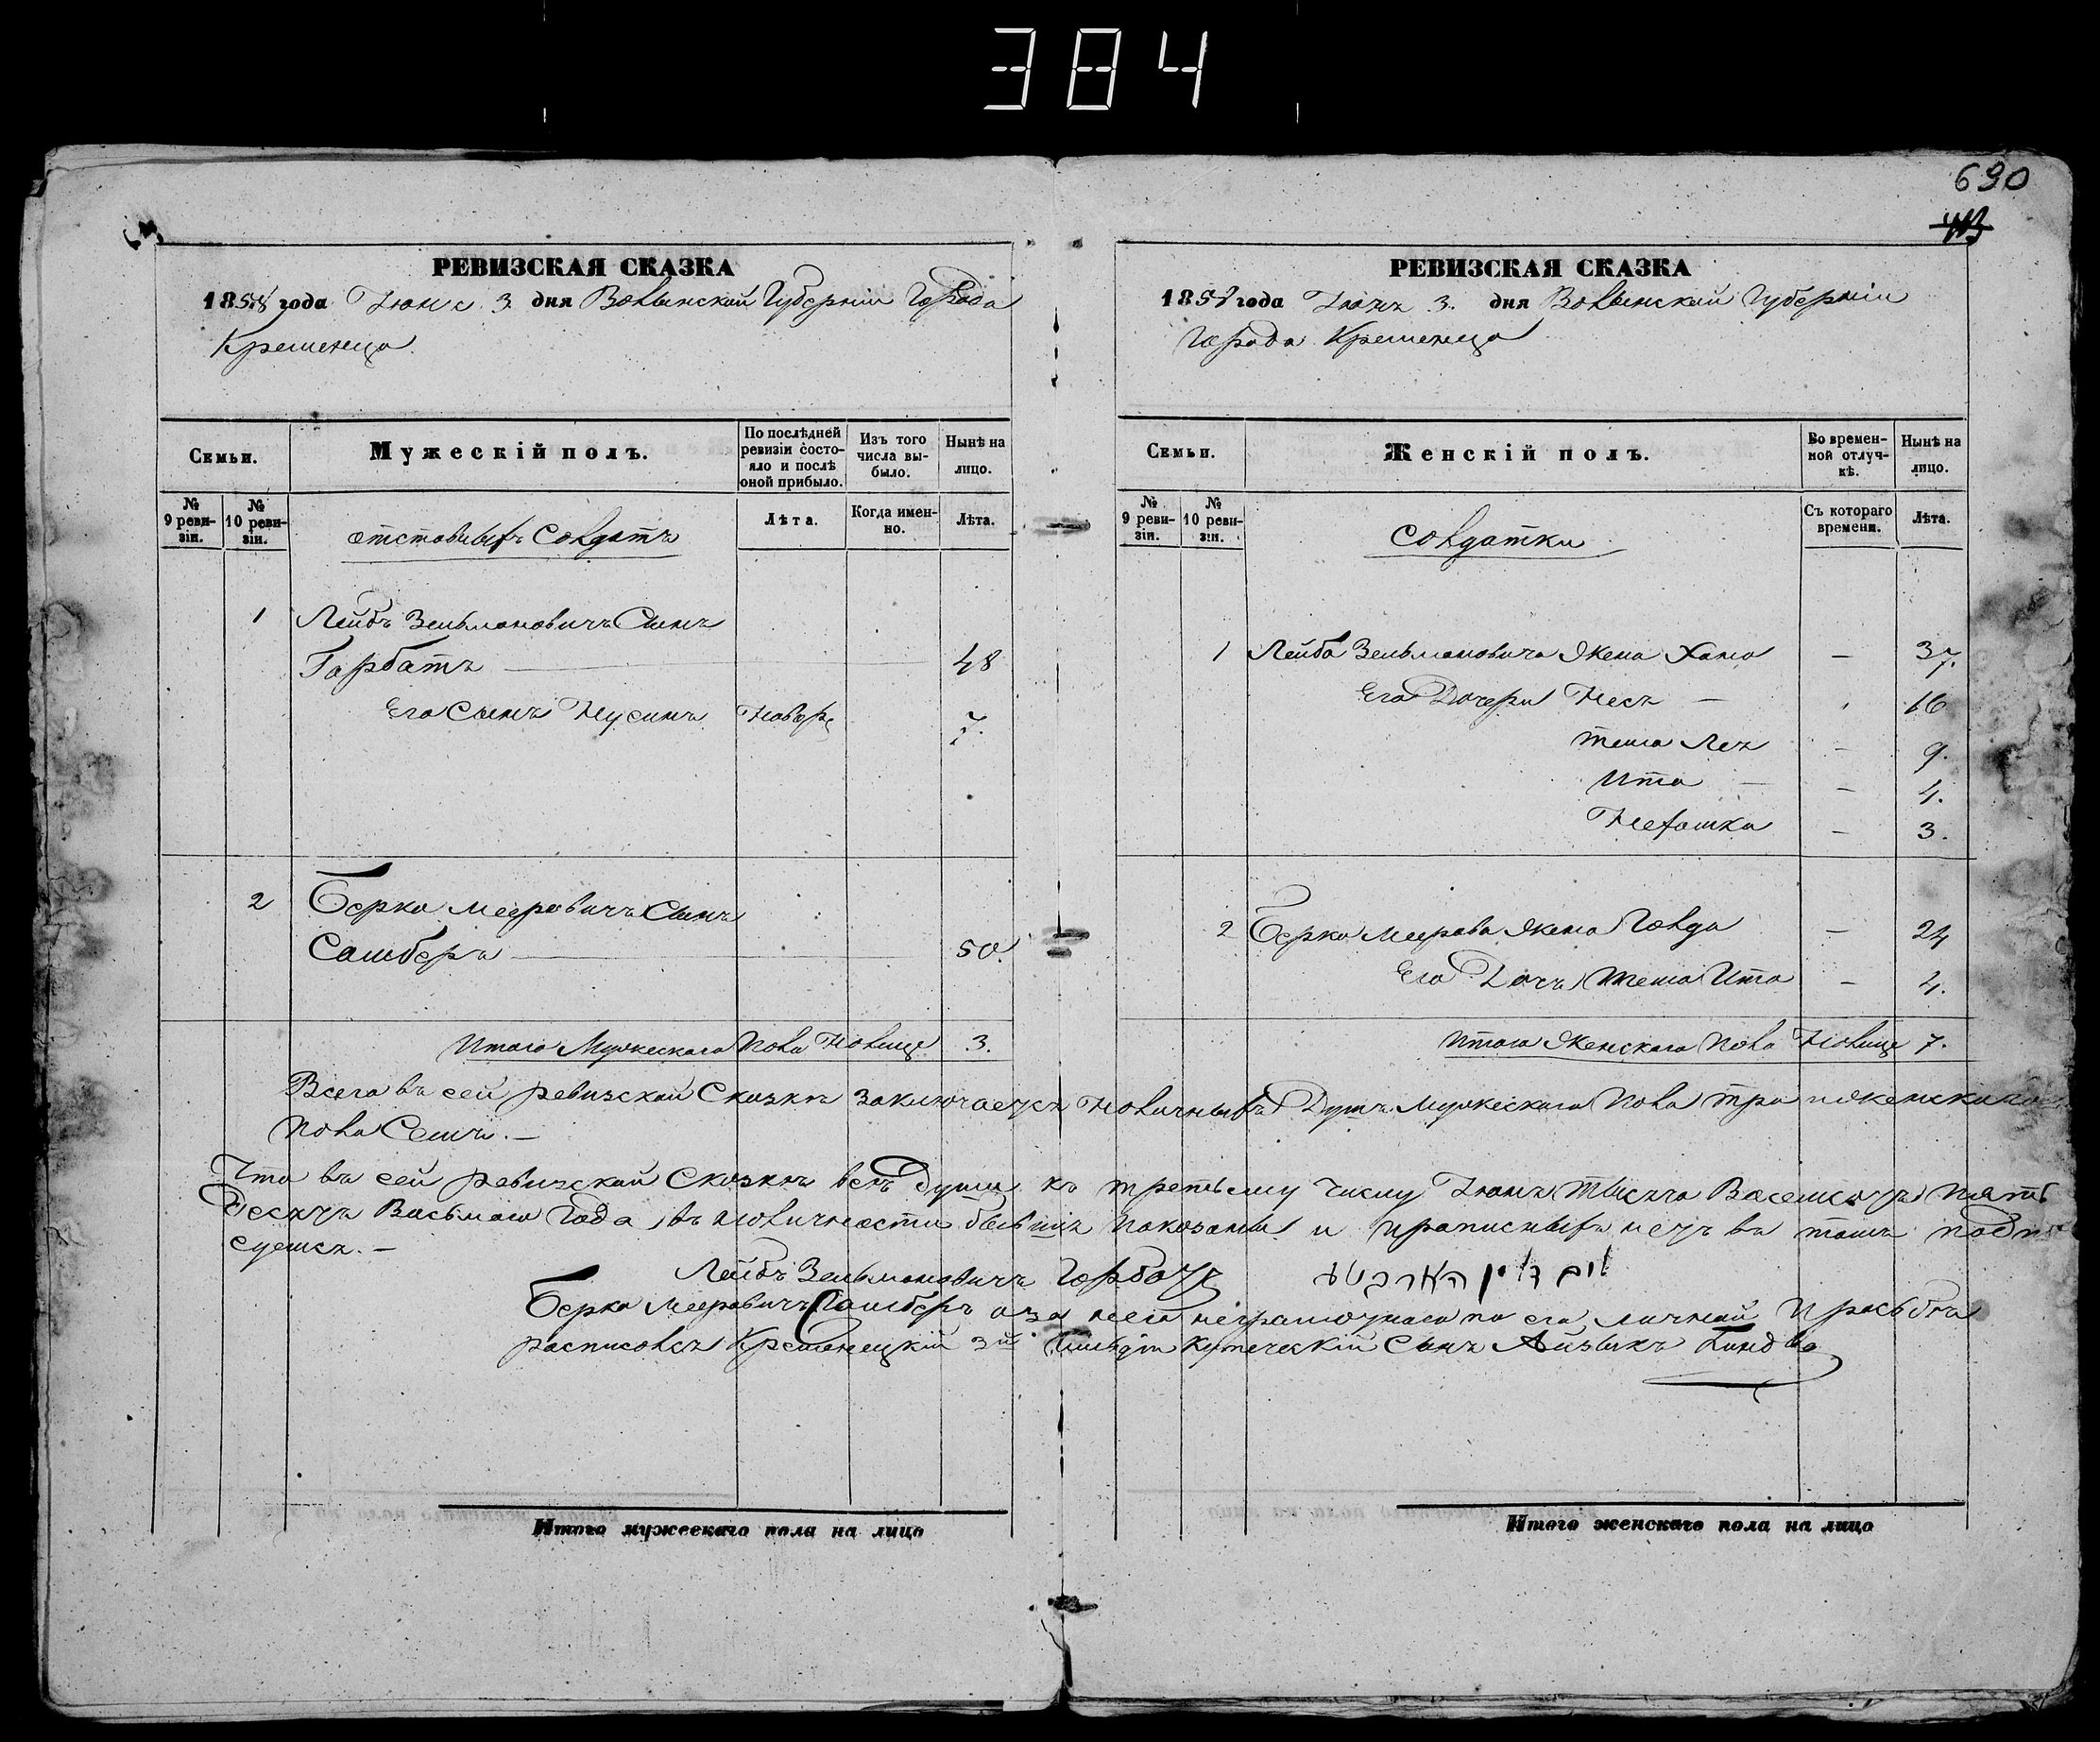 384
690
РЕВИЗСКАЯ СКАЗКА
1858 года Іюня 3 дня Волынской Губерніи Города
Кременца
Семьи.
Мужескій полъ.
По послѣдней ревизіи состояло и послѣ оной прибыло.
Изъ того числа выбыло.
Нынѣ на лицо.
№ 9 ревизіи.
№ 10 ревизіи.
отставныхъ Солдатъ
Лѣта.
Когда именно.
Лѣта.
1 Лейбъ Зельмановичъ Сынъ
Гарбатъ 48
Его Сынъ Нусинъ Новор. 7.
2 Берко Мееровичъ Сынъ
Самберъ 50.
Итого Мужескаго Пола Налице 3.
РЕВИЗСКАЯ СКАЗКА
1858 года Іюня 3. дня Волынской Губерніи
Города Кременца
Семьи.
Женскій полъ.
Во временной отлучкѣ.
Нынѣ на лицо.
№ 9 ревизіи.
№ 10 ревизіи.
Солдатки
Съ котораго времени.
Лѣта.
1 Лейба Зельмановича Жена Хана — 37.
Его Дочери Неся — 16
Лея — 9.
Ита — 4.
— 3.
2 Берка Меерова Жена Голда — 24
Его Дочь Ита — 4.
Итого Женскаго Пола Налице 7.
Всего въ сей ревизской Сказкѣ заключается Наличныхъ Душъ Мужескаго Пола три и женскаго
Пола Семь. —
Что въ сей ревизской Сказкѣ всѣ души къ третьему числу Іюня Тысяча Восемсотъ пять
десятъ Восьмаго Года въ наличности бывшія показаны и прописныхъ нетъ въ томъ подпи
суемся. —
Лейбъ Зельмановичъ Горбатъ
Берко Мееровичъ Самберъ а за него неграмотнаго по его личной Просьбѣ
росписался Кременецкій 3й Гильдіи купеческій Сынъ Айзыкъ
Итого мужескаго пола на лицо
Итого женскаго пола на лицо